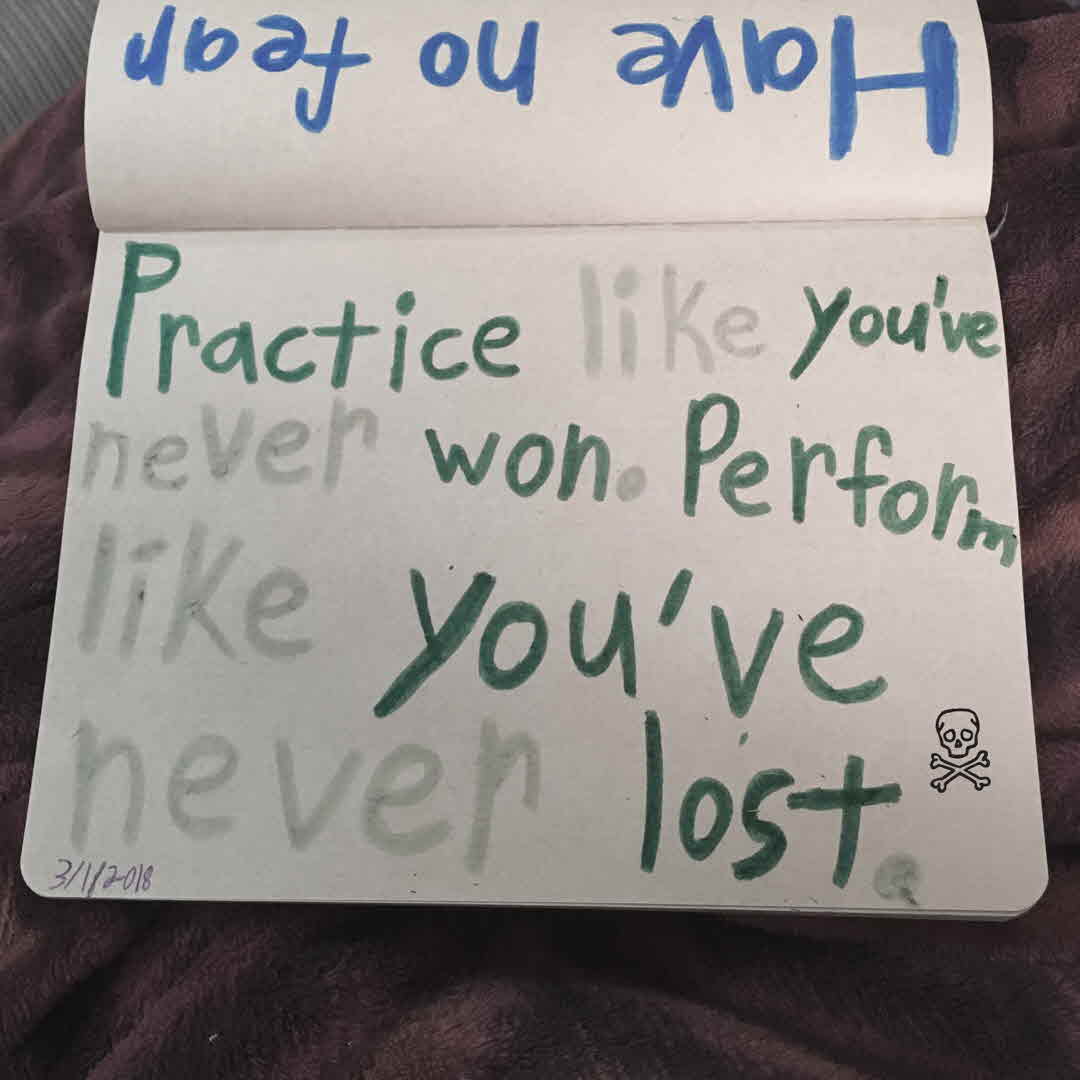 Have no fear
Practice like you've
never won. Perform
like you've
never lost.
3/1/2018